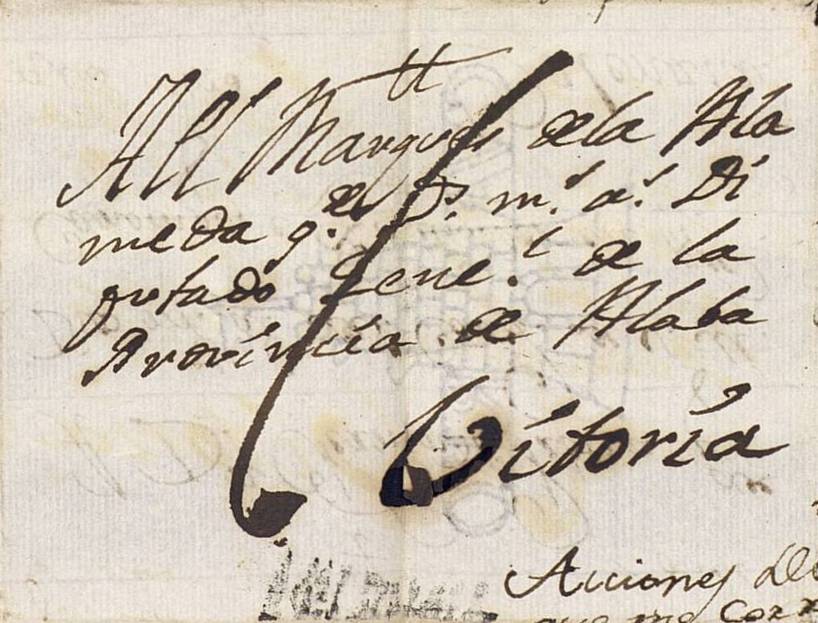 All Marques dela Ala
meda g.e D.s m.s a.s Di
putado Gene.l de la
Provincia de Alaba
Vitoria
Acciones
que me